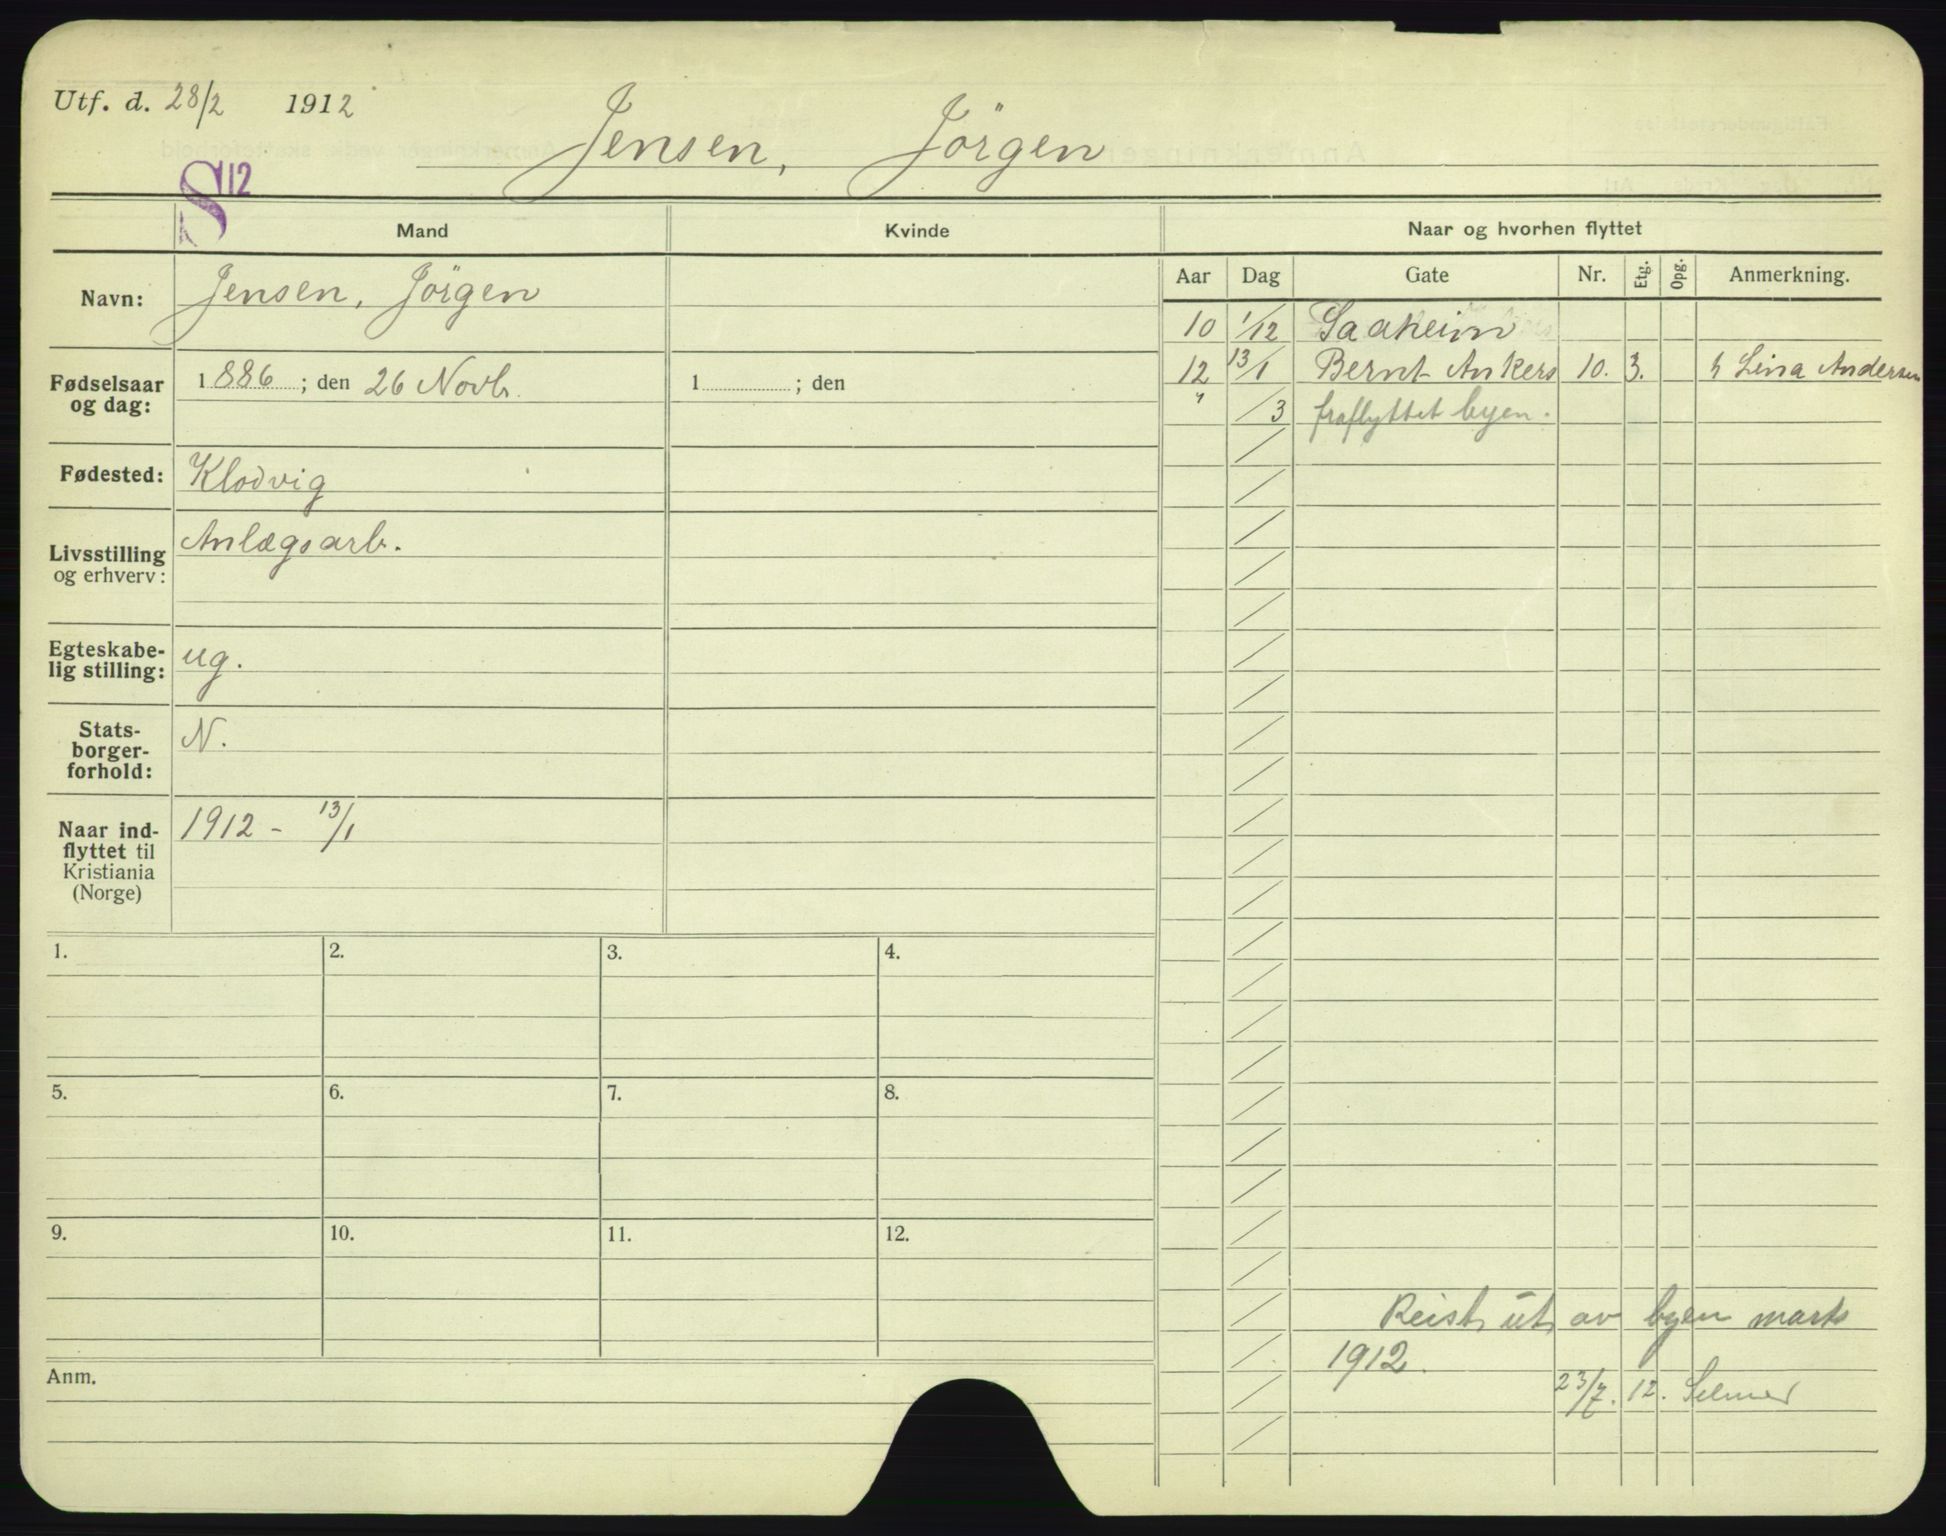 Utf. d. 28/2 1912
Jensen, Jörgen
S 12
Mand Kvinde Naar og hvorhen flyttet
Aar Dag Gate Nr. Etg. Opg. Anmerkning.
Navn: Jensen, Jörgen
10 1/12 Saaheim
Fødselsaar og dag: 1886; den 26 Novb. 1 ; den
12 13/1 Bernt Ankers 10. 3. h Lina Andersen
" /3 fraflyttet byen.
Fødested: Klodvig
Livsstilling og erhverv: Anlægsarb.
Egteskabe-
lig stilling: ug.
Stats-
borger-
forhold: N.
Naar ind-
flyttet til
Kristiania
(Norge) 1912 - 13/1
1. 2. 3. 4.
5. 6. 7. 8.
9. 10. 11. 12.
Reist ut av byen marts
1912.
23/7. 12. Selmer
Anm.